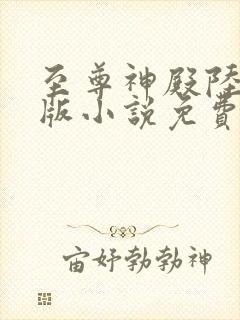 至尊神殿陸
版小說免費
宙妤勃勃神